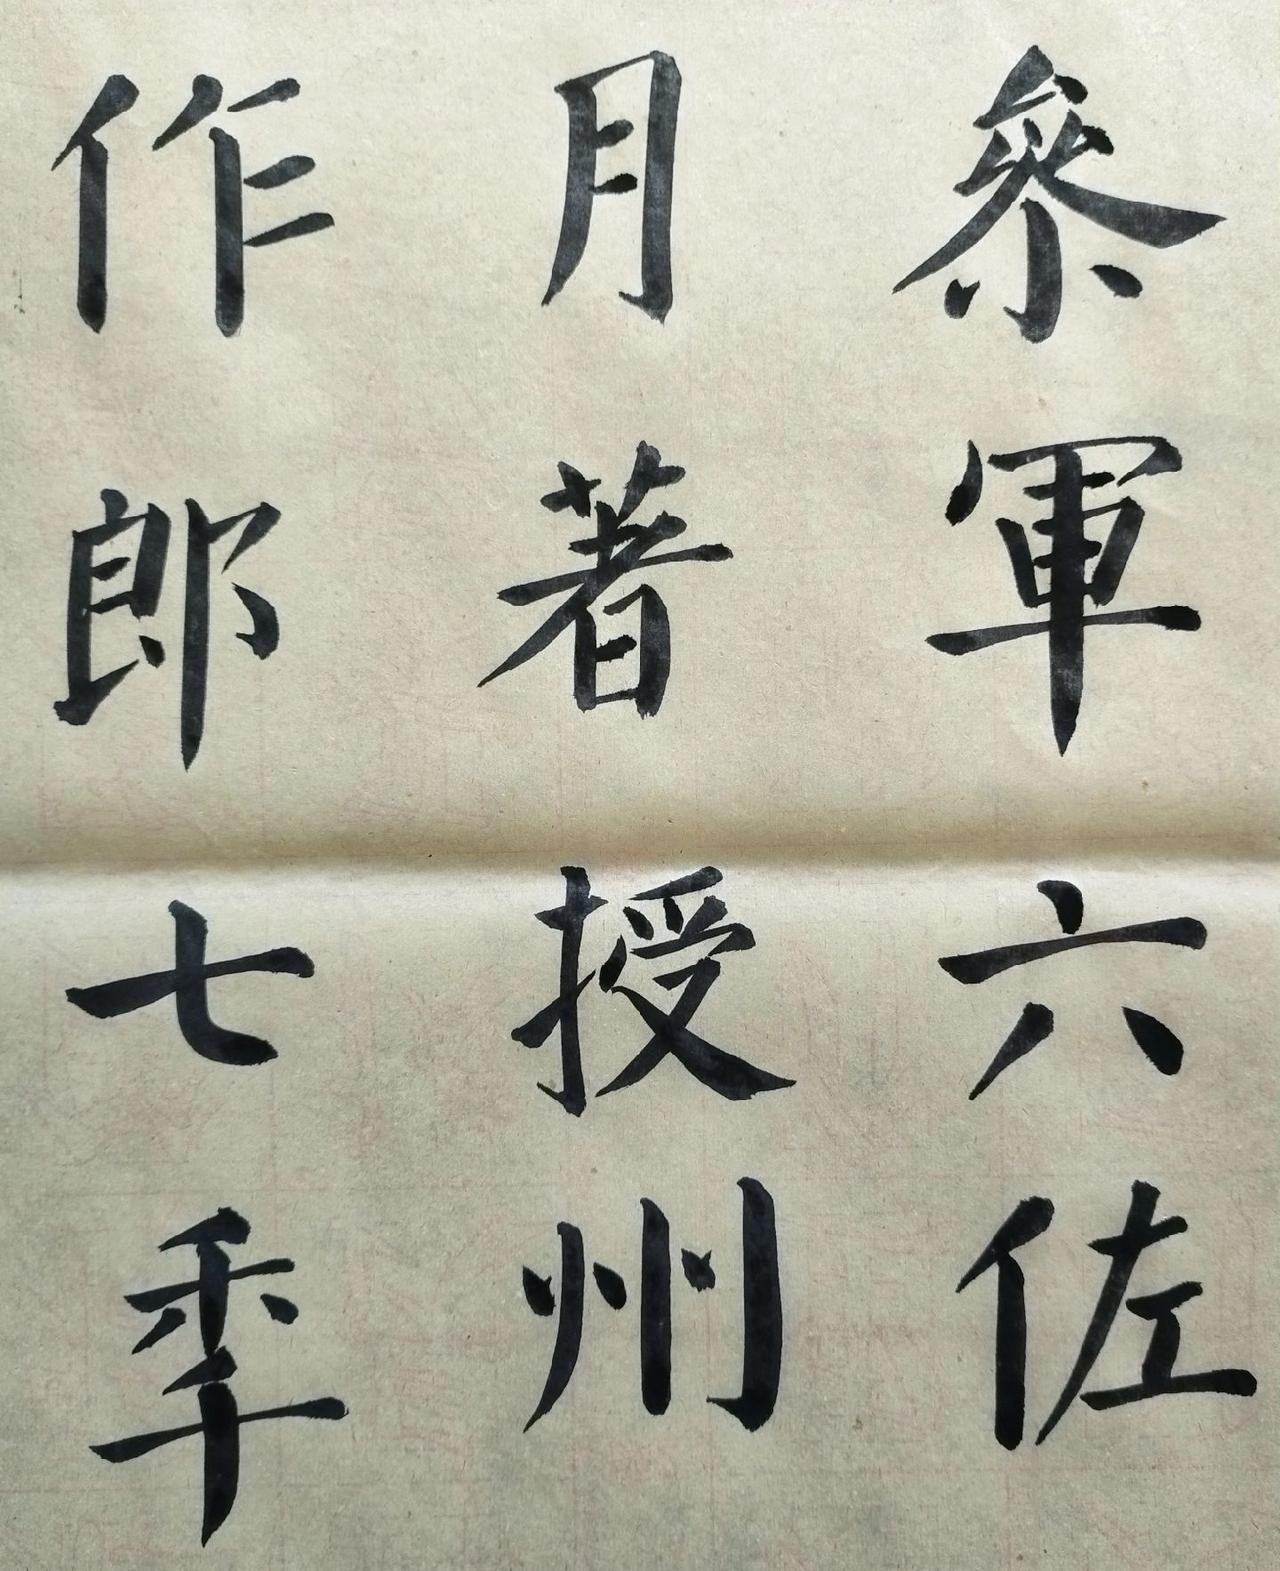 參軍六佐
月著授州
作郎七秊